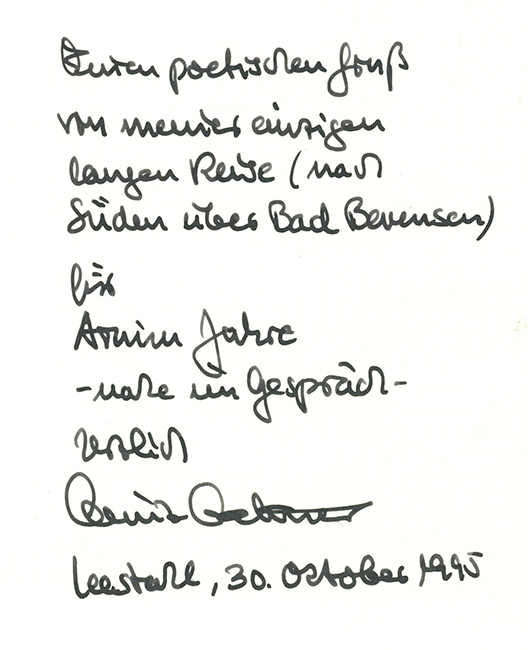 Einen poetischen Gruß
von meiner einzigen
langen Reise (nach
Süden über Bad Bevensen)
für
Armin Jahre
- nahe im Gespräch -
herzlich
Leestahl, 30. October 1995